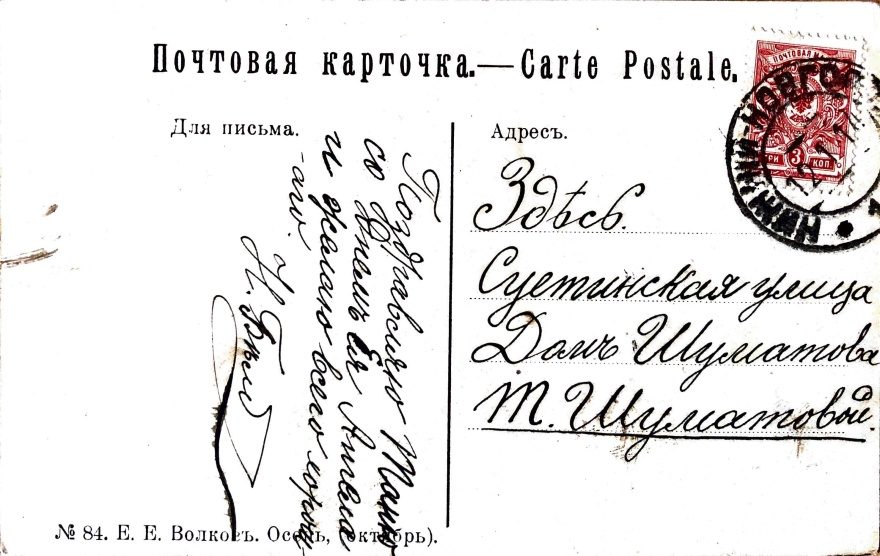 Почтовая карточка.—Carte Postale.
ПОЧТОВАЯ
3
КОП
НИЖНИЙ-НОВГО
12.1.1
Для письма.
Адресъ.
Поздравляю Таню
со Днемъ Ея Ангела
и желаю всего хорош-
-аго.
Н.
Здѣсь.
Суетинская улица
Домъ Шуматова
Т. Шуматовой.
№ 84. Е. Е. Волковъ. Осень, (октябрь).